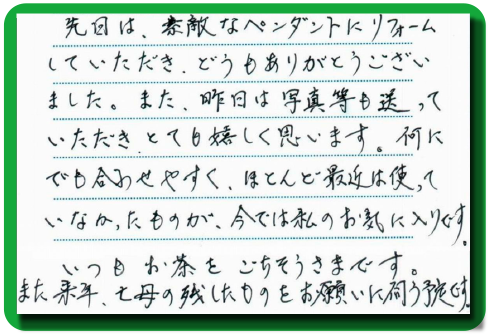 先日は、素敵なペンダントにリフォーム
していただき、どうもありがとうござい
ました。また、昨日は写真等も送って
いただき、とても嬉しく思います。何に
でも合わせやすく、ほとんど最近は使って
いなかったものが、今では私のお気に入りです。
いつもお茶をごちそうさまです。
また来年、亡母の残したものをお願いに伺う予定です。